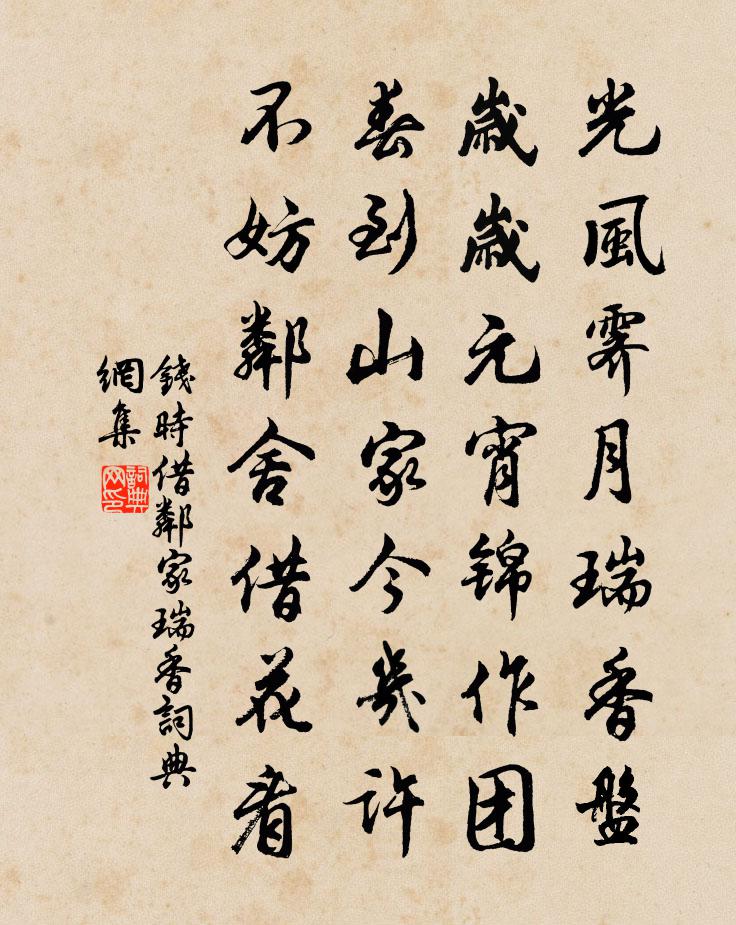 光風霽月瑞香盤
歲歲元宵錦作团
春到山家今幾許
不妨鄰舍借花看
錢時借鄰家瑞香詞典
網集
詞典
网印